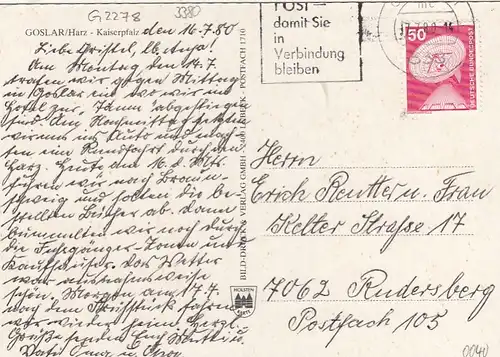 G2278 3380
GOSLAR/Harz - Kaiserpfalz
den 16.7.80
Liebe Christel, lb. Anja!
Am Montag den 14.7.
trafen wir gegen Mittag
in Goslar ein wo wir im
Hotel zur "Tanne" abgestiegen
sind. Am Nachmittag setzten
wir uns ins Auto und mach-
ten ein Rundfahrt durch den
Harz. Heute den 16. d. Mts.
fuhren wir nach Braun-
schweig und holten die be-
stellten Bücher ab. Dann
bummelten wir noch durch
die Fußgänger-Zonen und
Kaufhäuser. Das Wetter
war ausnahmsweise
schön. Morgen am 17.7.
nach dem Frühstück fahren
wir wieder heim. Herzl.
Grüße senden Euch Mutti u.
Vati Oma u. Opa
BILD-DRUCK VERLAG GMBH · 2400 LÜBECK · POSTFACH 1710
HOLSTEN
KARTE
POST –
damit Sie
in
Verbindung
bleiben
17.7.80
50
DEUTSCHE BUNDESPOST
Herrn
Erich Reutter und Frau
Kelter Straße 17
7062 Rudersberg
Postfach 105
0040